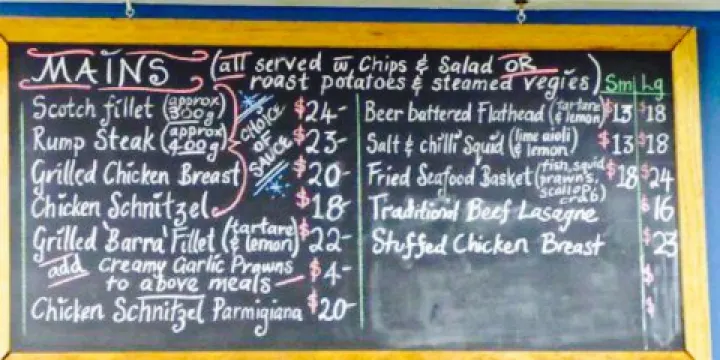 MAINS (all served w Chips & Salad OR
roast potatoes & steamed vegies)
Scotch fillet (approx 300g) $24-
Rump Steak (approx 400g) $23-
Grilled Chicken Breast $20-
Chicken Schnitzel $18-
CHOICE OF SAUCE
Grilled 'Barra' Fillet (tartare & lemon) $22-
add creamy Garlic Prawns
to above meals - $4-
Chicken Schnitzel Parmigiana $20-
Sm Lg
Beer battered Flathead (tartare & lemon) $13 $18
Salt & chilli Squid (lime aioli & lemon) $13 $18
Fried Seafood Basket (fish, squid prawns, scallop, crab) $18 $24
Traditional Beef Lasagne $16
Stuffed Chicken Breast $23
$
$